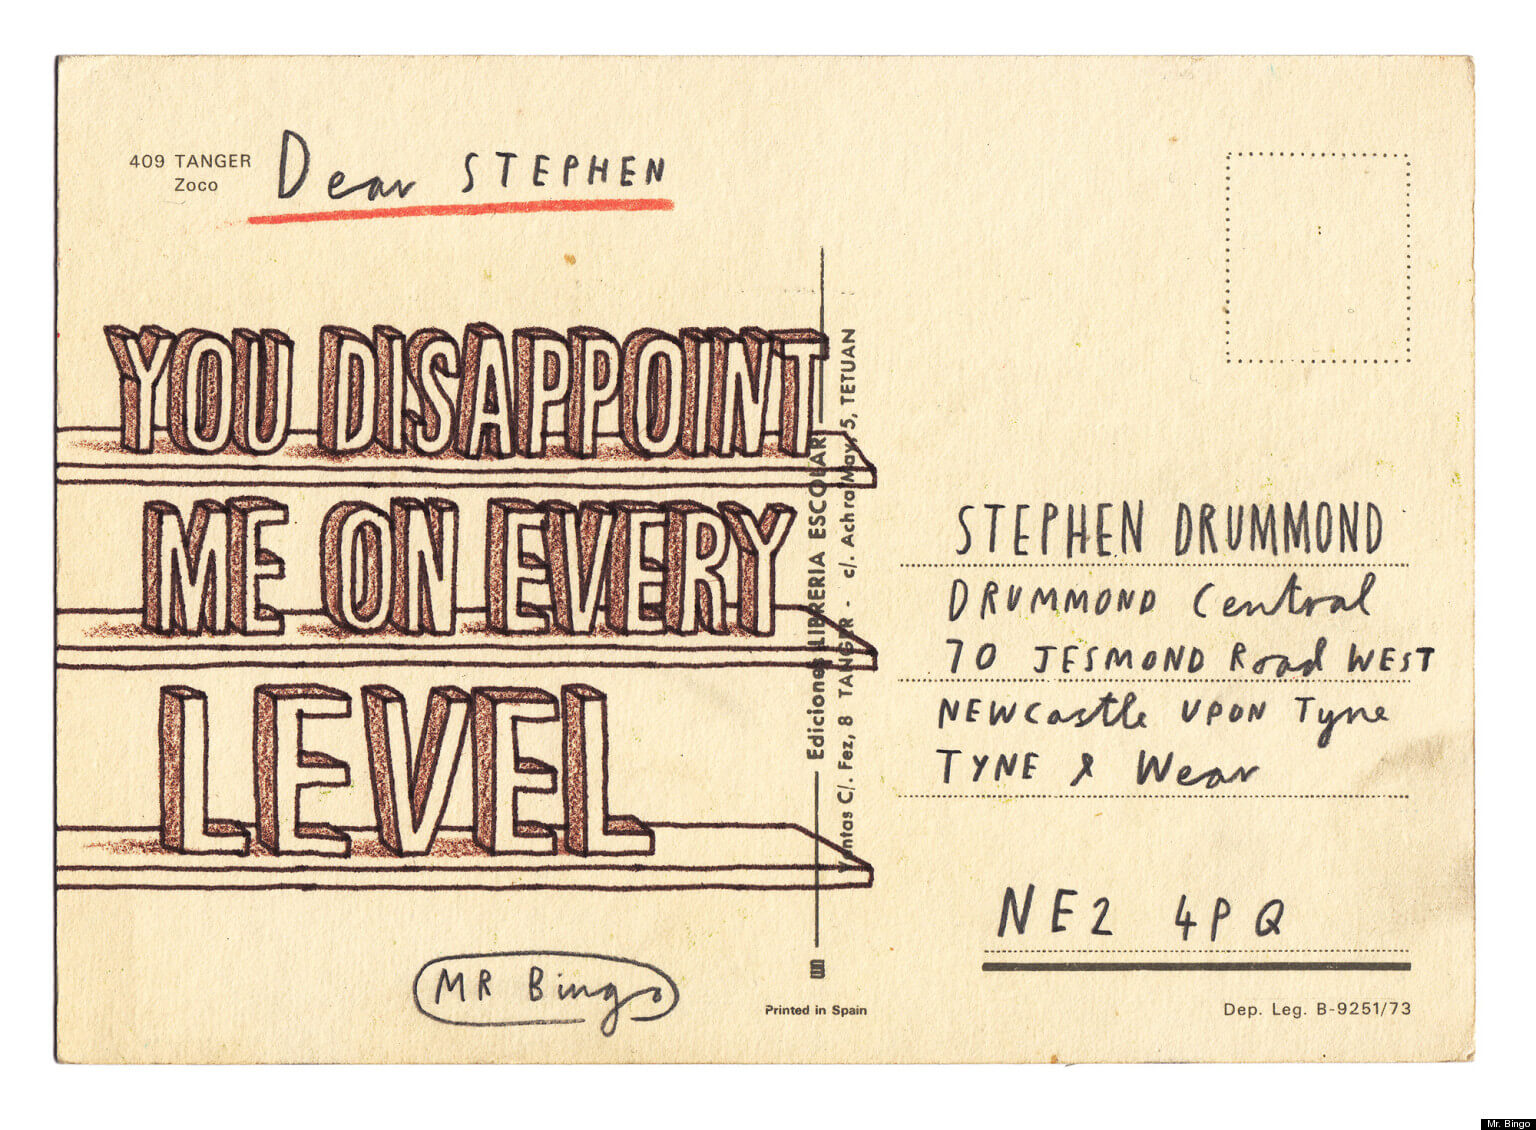 409 TANGER
Zoco
Dear STEPHEN
YOU DISAPPOINT
ME ON EVERY
LEVEL
MR Bingo
Ediciones LIBRERIA ESCOLAR
C/. Fez, 8 TANGER - c/. Achra May 5, TETUAN
Printed in Spain
STEPHEN DRUMMOND
DRUMMOND Central
70 JESMOND Road WEST
NEWCastle UPON Tyne
TYNE & Wear
NE2 4PQ
Dep. Leg. B-9251/73
Mr. Bingo